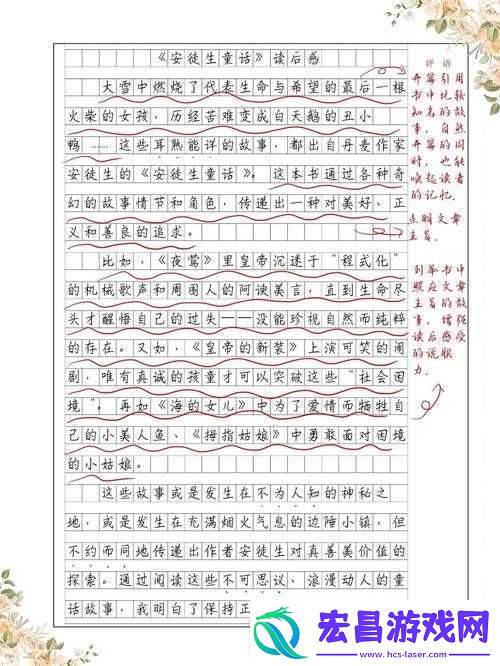 《安徒生童话》读后感
大雪中燃烧了代表生命与希望的最后一根
火柴的女孩，历经苦难变成白天鹅的丑小
鸭……这些耳熟能详的故事，都出自丹麦作家
安徒生的《安徒生童话》。这本书通过各种奇
幻的故事情节和角色，传递出一种对美好、正
义和善良的追求。
比如，《夜莺》里皇帝沉迷于“程式化”
的机械歌声和周围人的阿谀美言，直到生命尽
头才醒悟自己的过失——没能珍视自然而纯粹
的存在。又如，《皇帝的新装》上演可笑的闹
剧，唯有真诚的孩童才可以突破这些“社会困
境”。再如《海的女儿》中为了爱情而牺牲自
己的小美人鱼、《拇指姑娘》中勇敢面对困境
的小姑娘。
这些故事或是发生在不为人知的神秘之
地，或是发生在充满烟火气息的边陲小镇，但
不约而同地传递出作者安徒生对真善美价值的
探索。通过阅读这些不可思议、浪漫动人的童
话故事，我明白了保持正
评语
开篇引用
书中比较
知名的故
事，自然
开篇的同
时，也能
唤起读者
的记忆，
点明文章
主旨。
列举书中
照应文章
主旨的故
事，增强
读后感受
的说服
力。
宏昌游戏网
www.hcs-laser.com